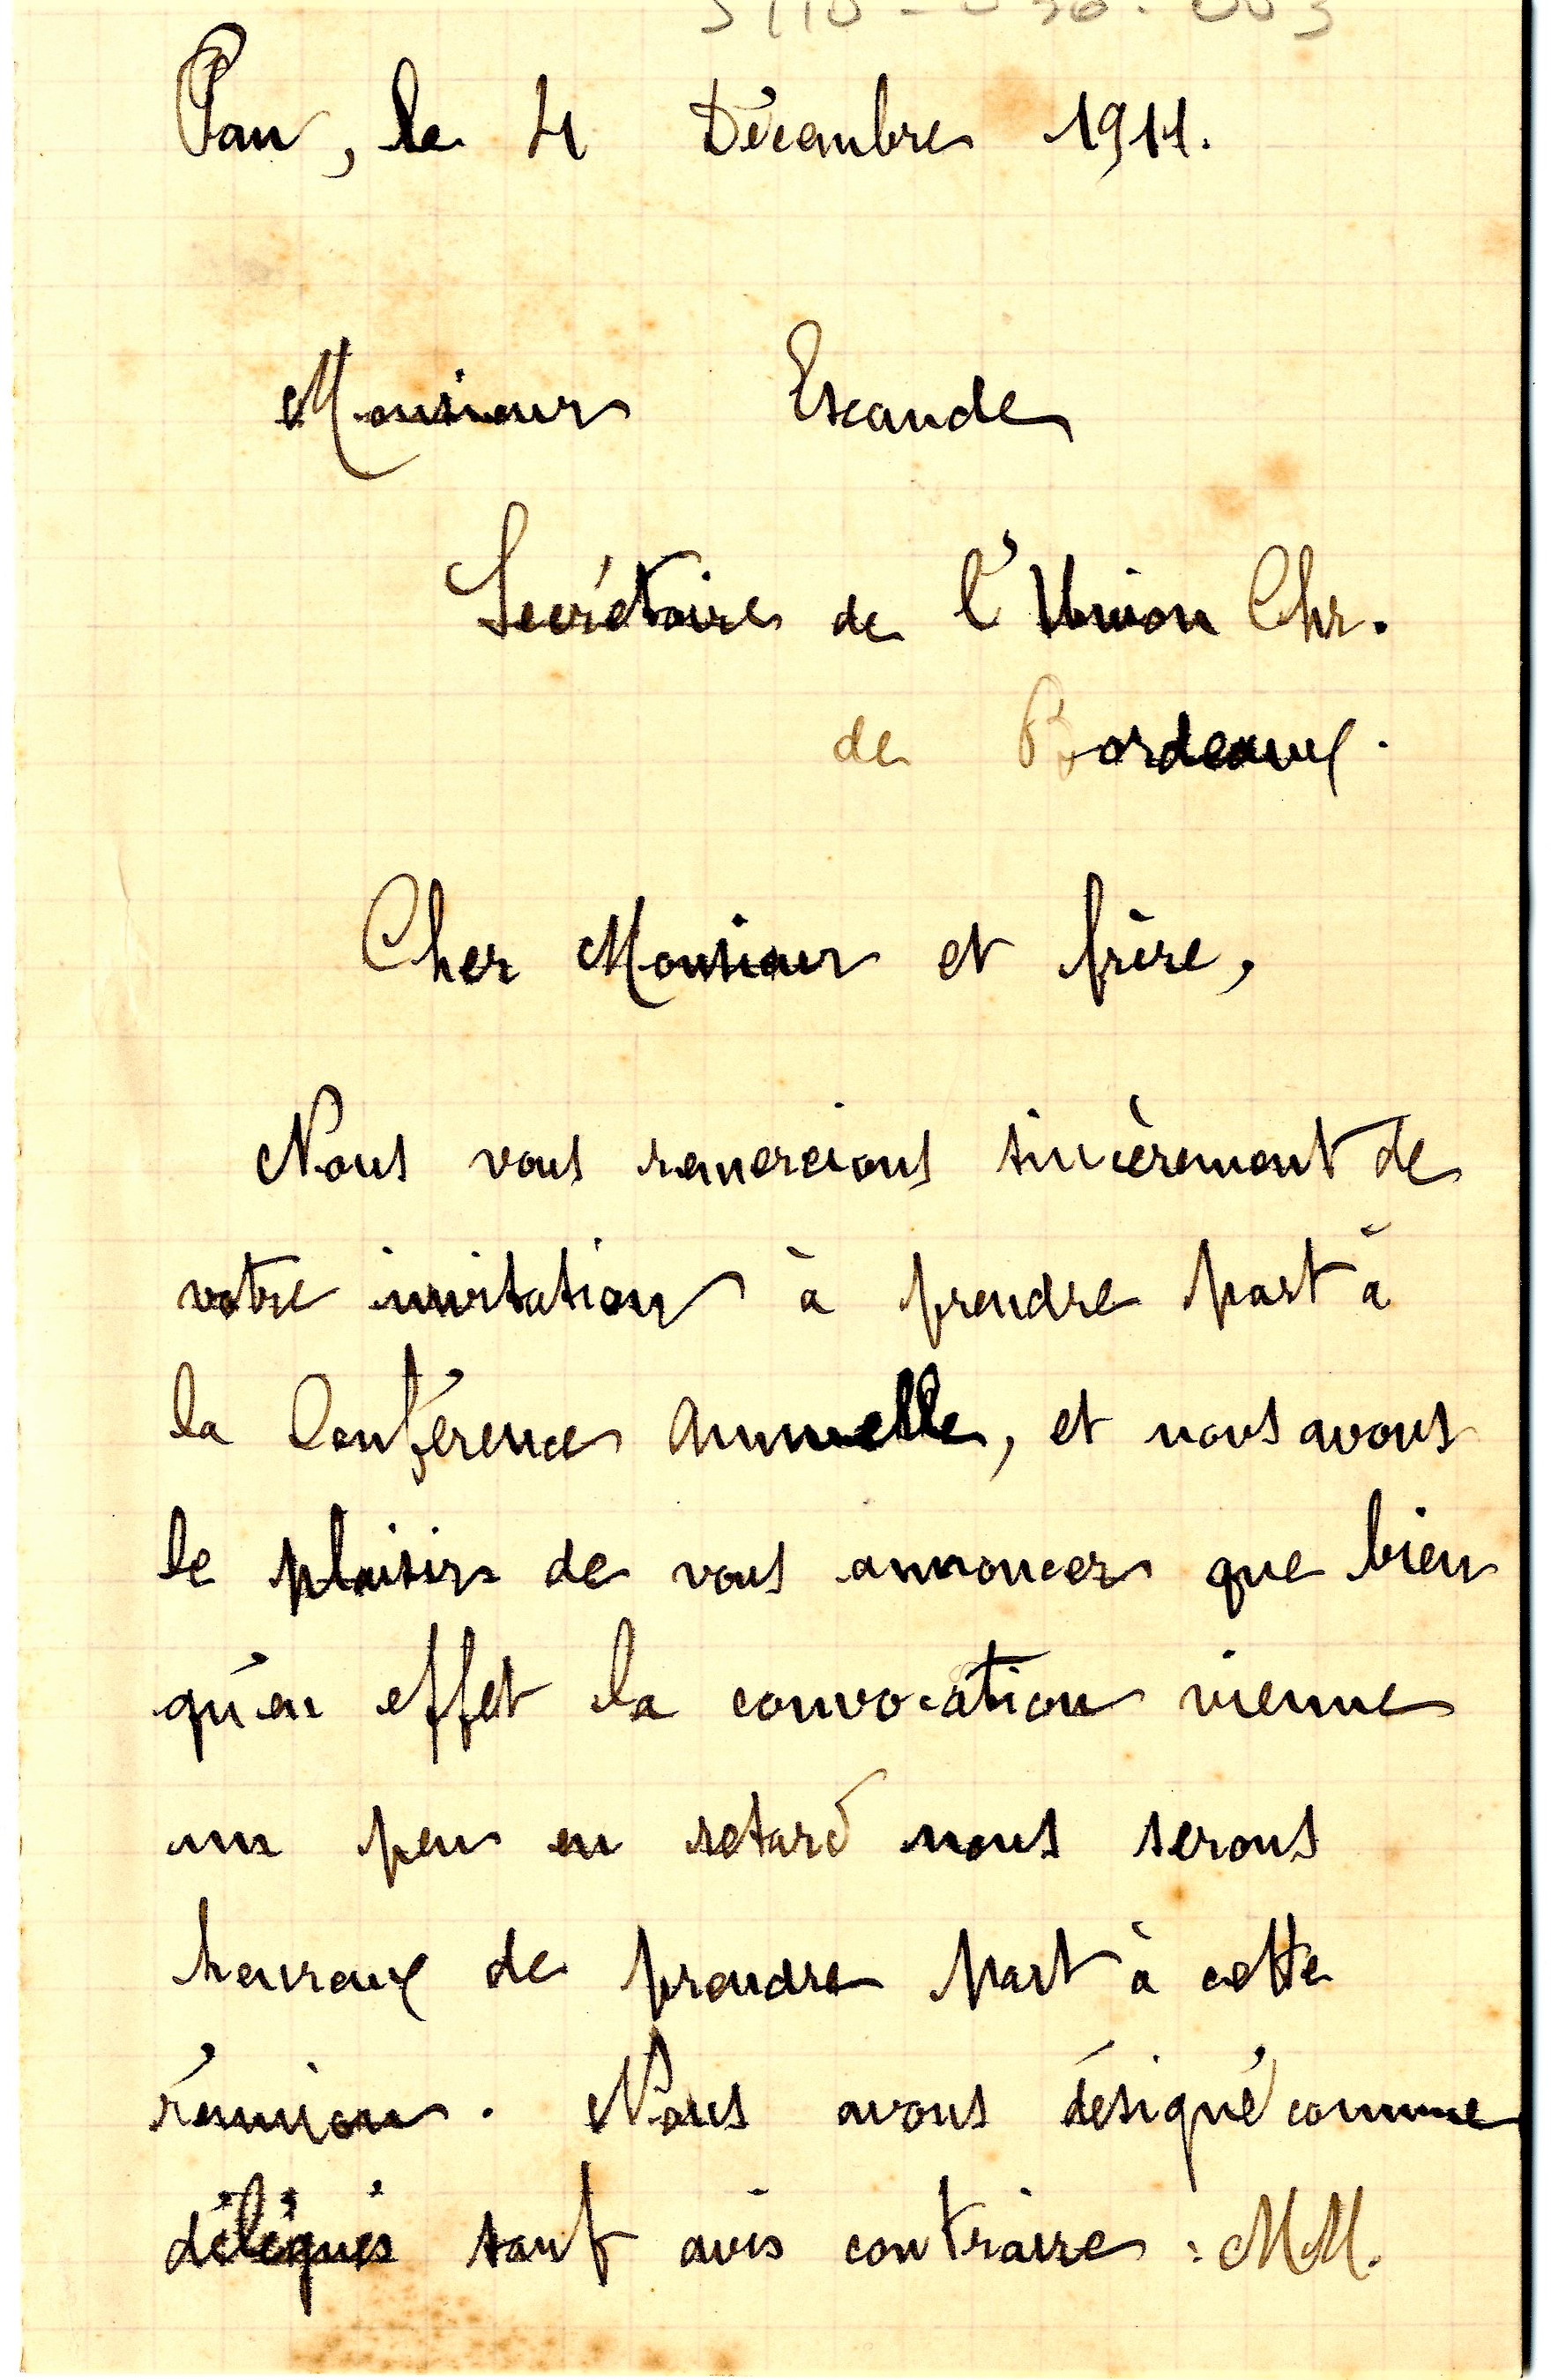 Pau, le 4 Décembre 1911.
Monsieur Escande
Secrétaire de l'Union Chr.
de Bordeaux.
Cher Monsieur et frère,
Nous vous remercions sincèrement de
votre invitation à prendre part à
la Conférence Annuelle, et nous avons
le plaisir de vous annoncer que bien
qu'en effet la convocation vienne
un peu en retard nous serons
heureux de prendre part à cette
réunion. Nous avons désigné comme
délégués sauf avis contraire : MM.